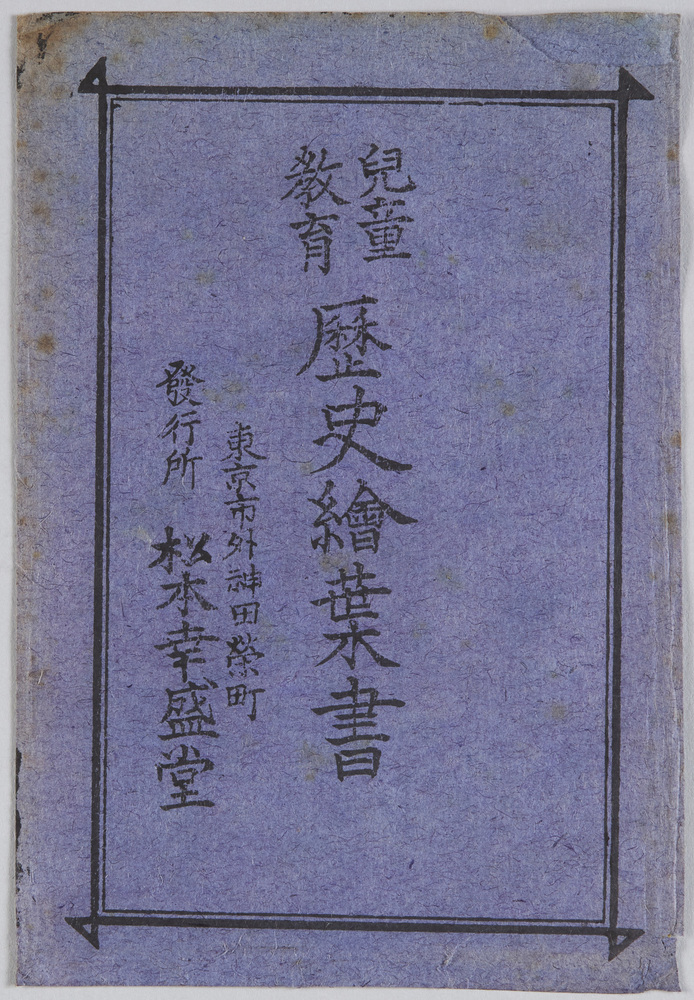 兒童
教育
歷史繪葉書
東京市外神田榮町
發行所 松本幸盛堂